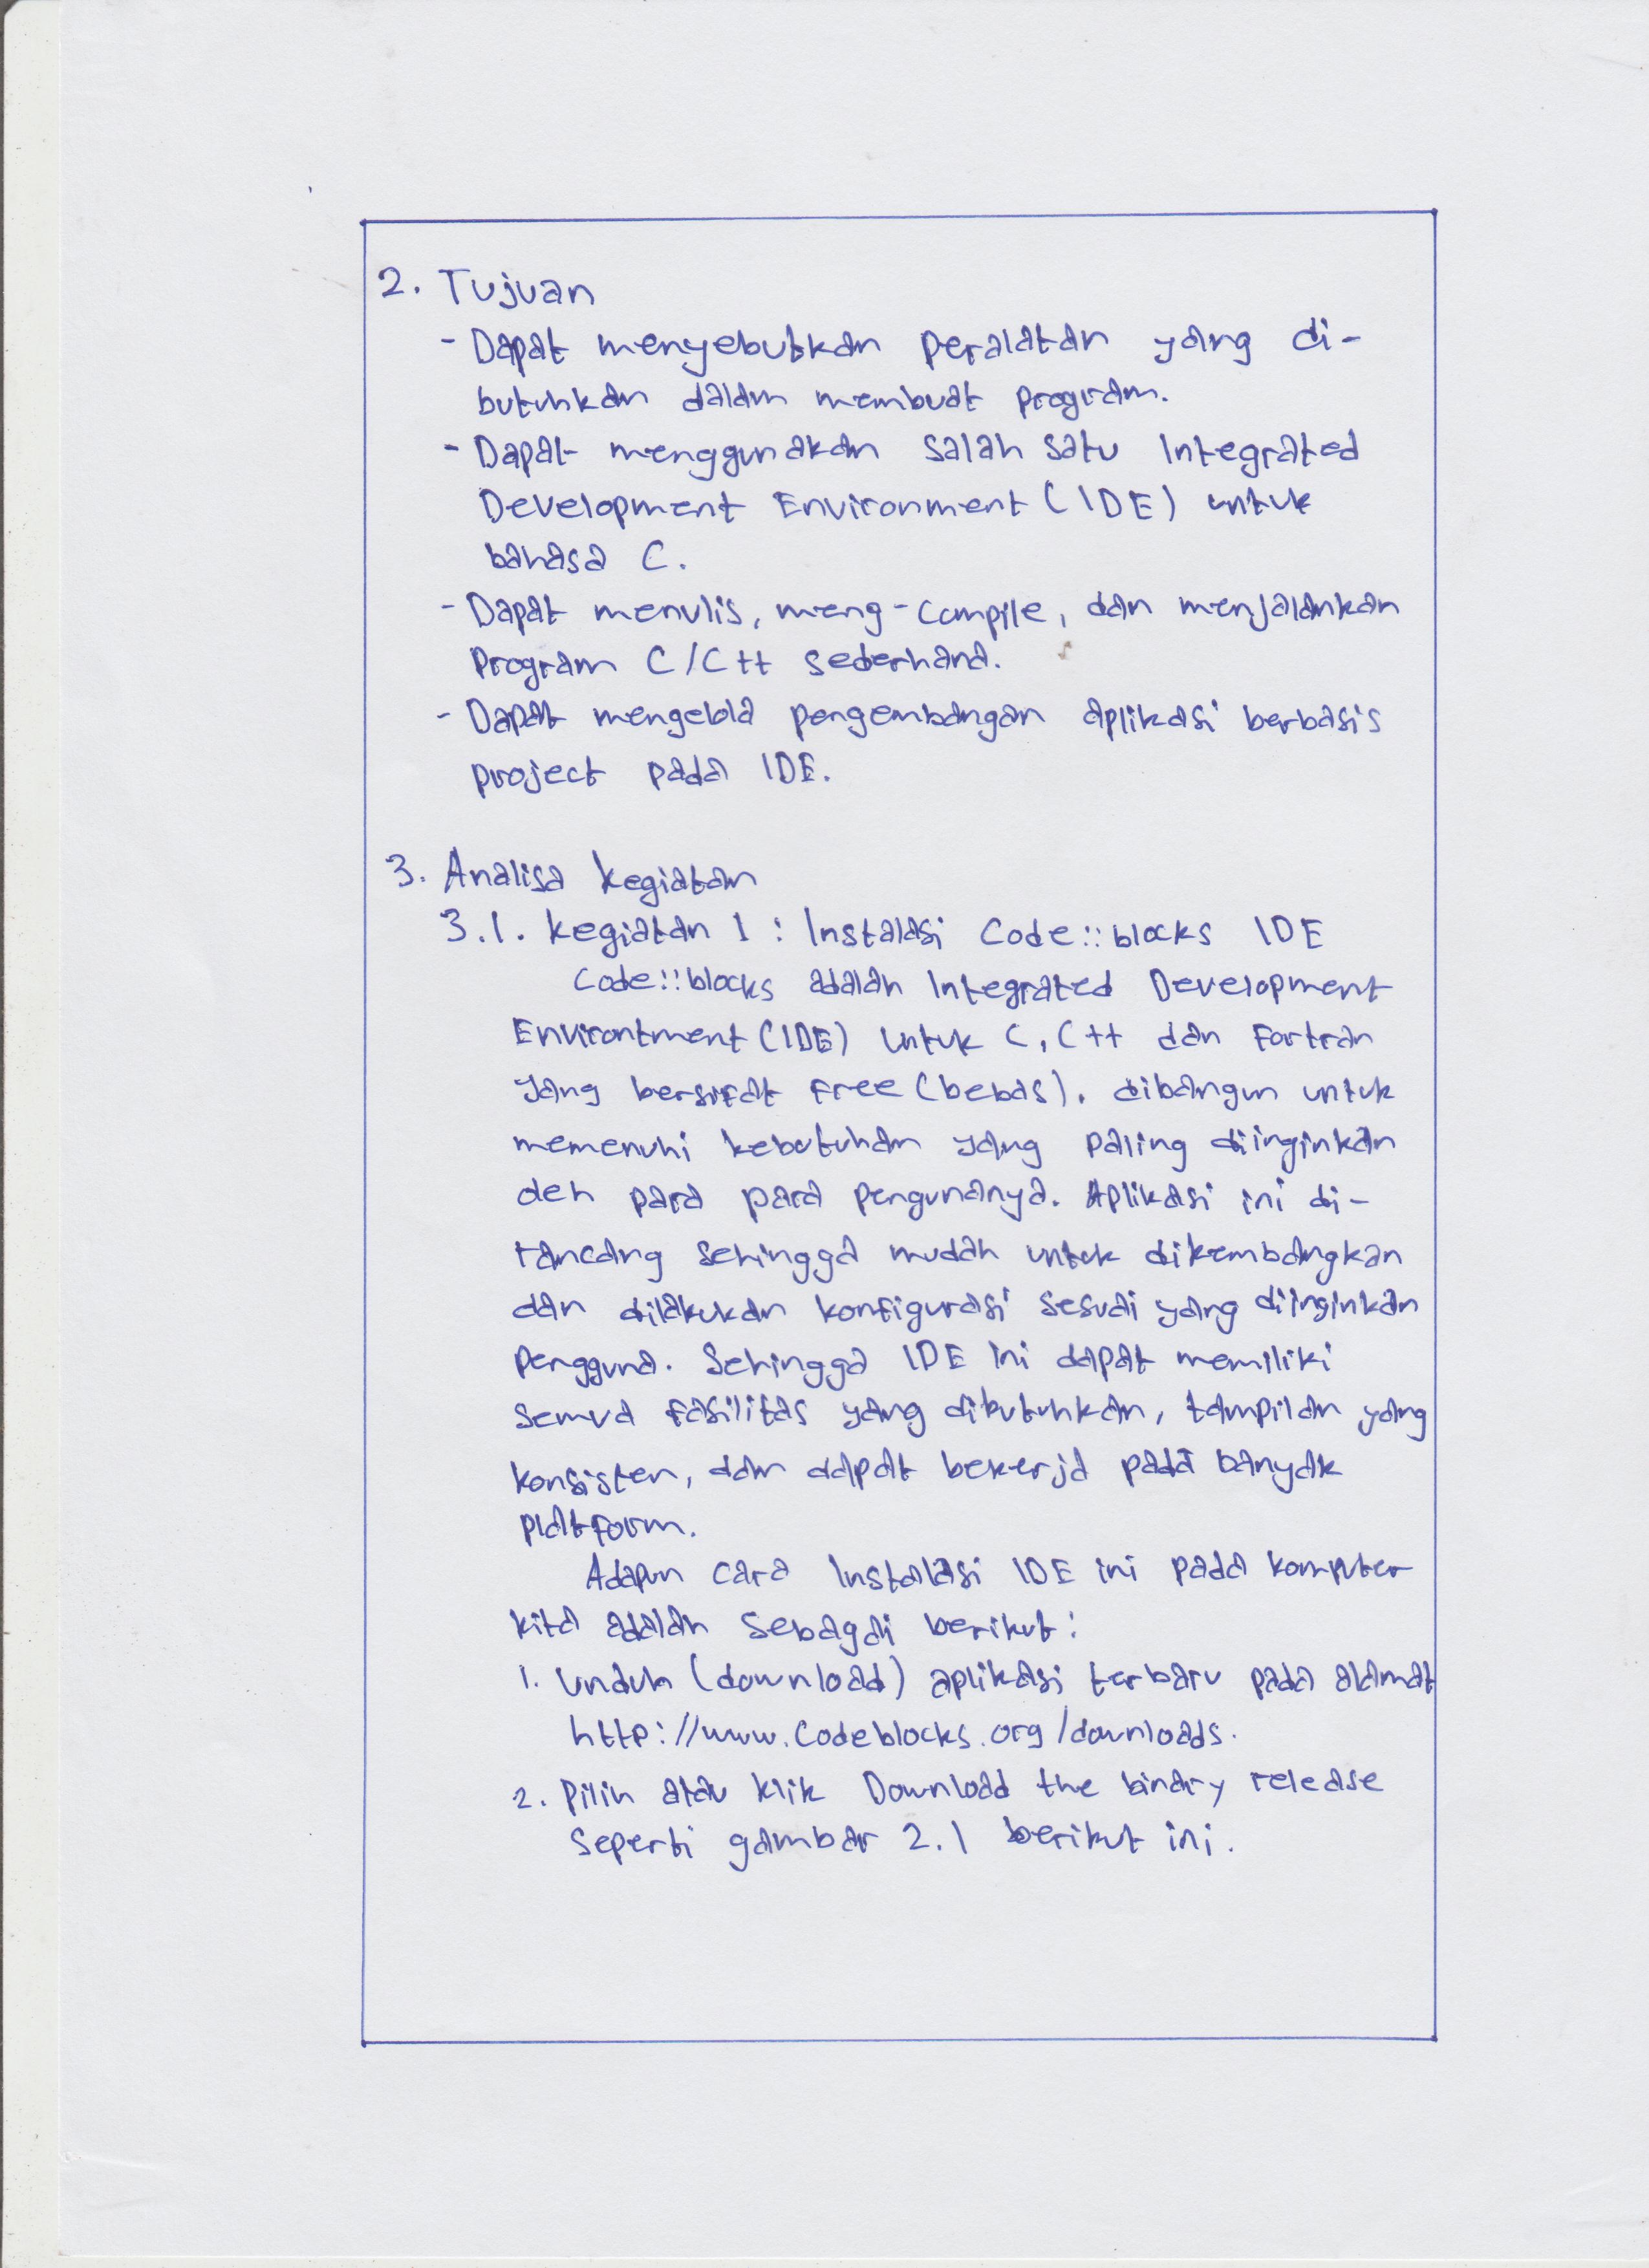 2. Tujuan
- Dapat menyebutkan peralatan yang di-
butuhkan dalam membuat program.
- Dapat menggunakan salah satu Integrated
Development Environment (IDE) untuk
bahasa C.
- Dapat menulis, meng-compile, dan menjalankan
Program C/C++ sederhana.
- Dapat mengelola pengembangan aplikasi berbasis
project pada IDE.
3. Analisa kegiatan
3.1. kegiatan 1 : Instalasi Code::blocks IDE
Code::blocks adalah Integrated Development
Environtment (IDE) untuk C, C++ dan Fortran
yang bersifat free (bebas). dibangun untuk
memenuhi kebutuhan yang paling diinginkan
oleh para para pengunanya. Aplikasi ini di-
rancang sehingga mudah untuk dikembangkan
dan dilakukan konfigurasi sesuai yang diinginkan
Pengguna. Sehingga IDE ini dapat memiliki
semua fasilitas yang dibutuhkan, tampilan yang
konsisten, dan dapat bekerja pada banyak
platform.
Adapun cara Instalasi IDE ini pada komputer
kita adalah sebagai berikut:
1. Unduh (download) aplikasi terbaru pada alamat
http://www.Codeblocks.org/downloads.
2. Pilih atau klik Download the binary release
Seperti gambar 2.1 berikut ini.